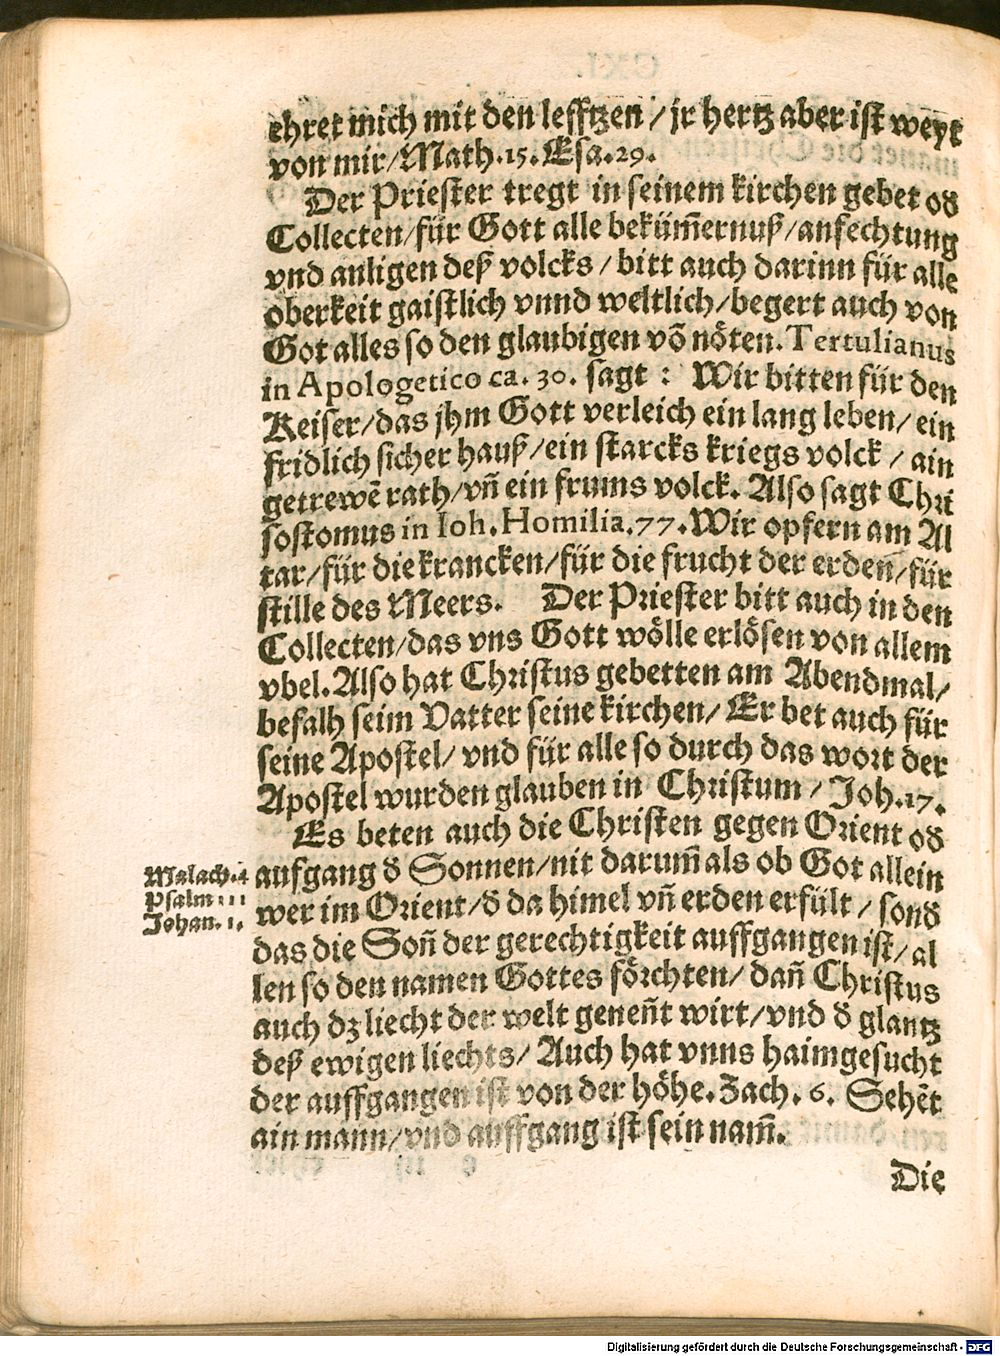 ehret mich mit den lefftzen / jr hertz aber ist weyt
von mir / Math. 15. Esa. 29.
Der Priester tregt in seinem kirchen gebet od
Collecten / für Gott alle beküm̃ernuß / anfechtung
vnd anligen deß volcks / bitt auch darinn für alle
oberkeit gaistlich vnnd weltlich / begert auch von
Got alles so den glaubigen võ nöten. Tertulianus
in Apologetico ca. 30. sagt : Wir bitten für den
Keiser / das jhm Gott verleich ein lang leben / ein
fridlich sicher hauß / ein starcks kriegs volck / ain
getrewẽ rath / vñ ein frums volck. Also sagt Chri
sostomus in Ioh. Homilia. 77. Wir opfern am Al
tar / für die krancken / für die frucht der erden / für
stille des Meers. Der Priester bitt auch in den
Collecten / das vns Gott wölle erlösen von allem
vbel. Also hat Christus gebetten am Abendmal /
befalh seim Vatter seine kirchen / Er bet auch für
seine Apostel / vnd für alle so durch das wort der
Apostel wurden glauben in Christum / Joh. 17.
Es beten auch die Christen gegen Orient od
aufgang d Sonnen / nit darum̃ als ob Got allein
wer im Orient / d da himel vñ erden erfült / sond
das die Soñ der gerechtigkeit auffgangen ist / al
len so den namen Gottes förchten / dañ Christus
auch dz liecht der welt geneñt wirt / vnd d glantz
deß ewigen liechts / Auch hat vnns haimgesucht
der auffgangen ist von der höhe. Zach. 6. Sehẽt
ain mann / vnd auffgang ist sein nam̃.
Malach. 4
Psalm 111
Johan. 1.
Die
Digitalisierung gefördert durch die Deutsche Forschungsgemeinschaft - DFG